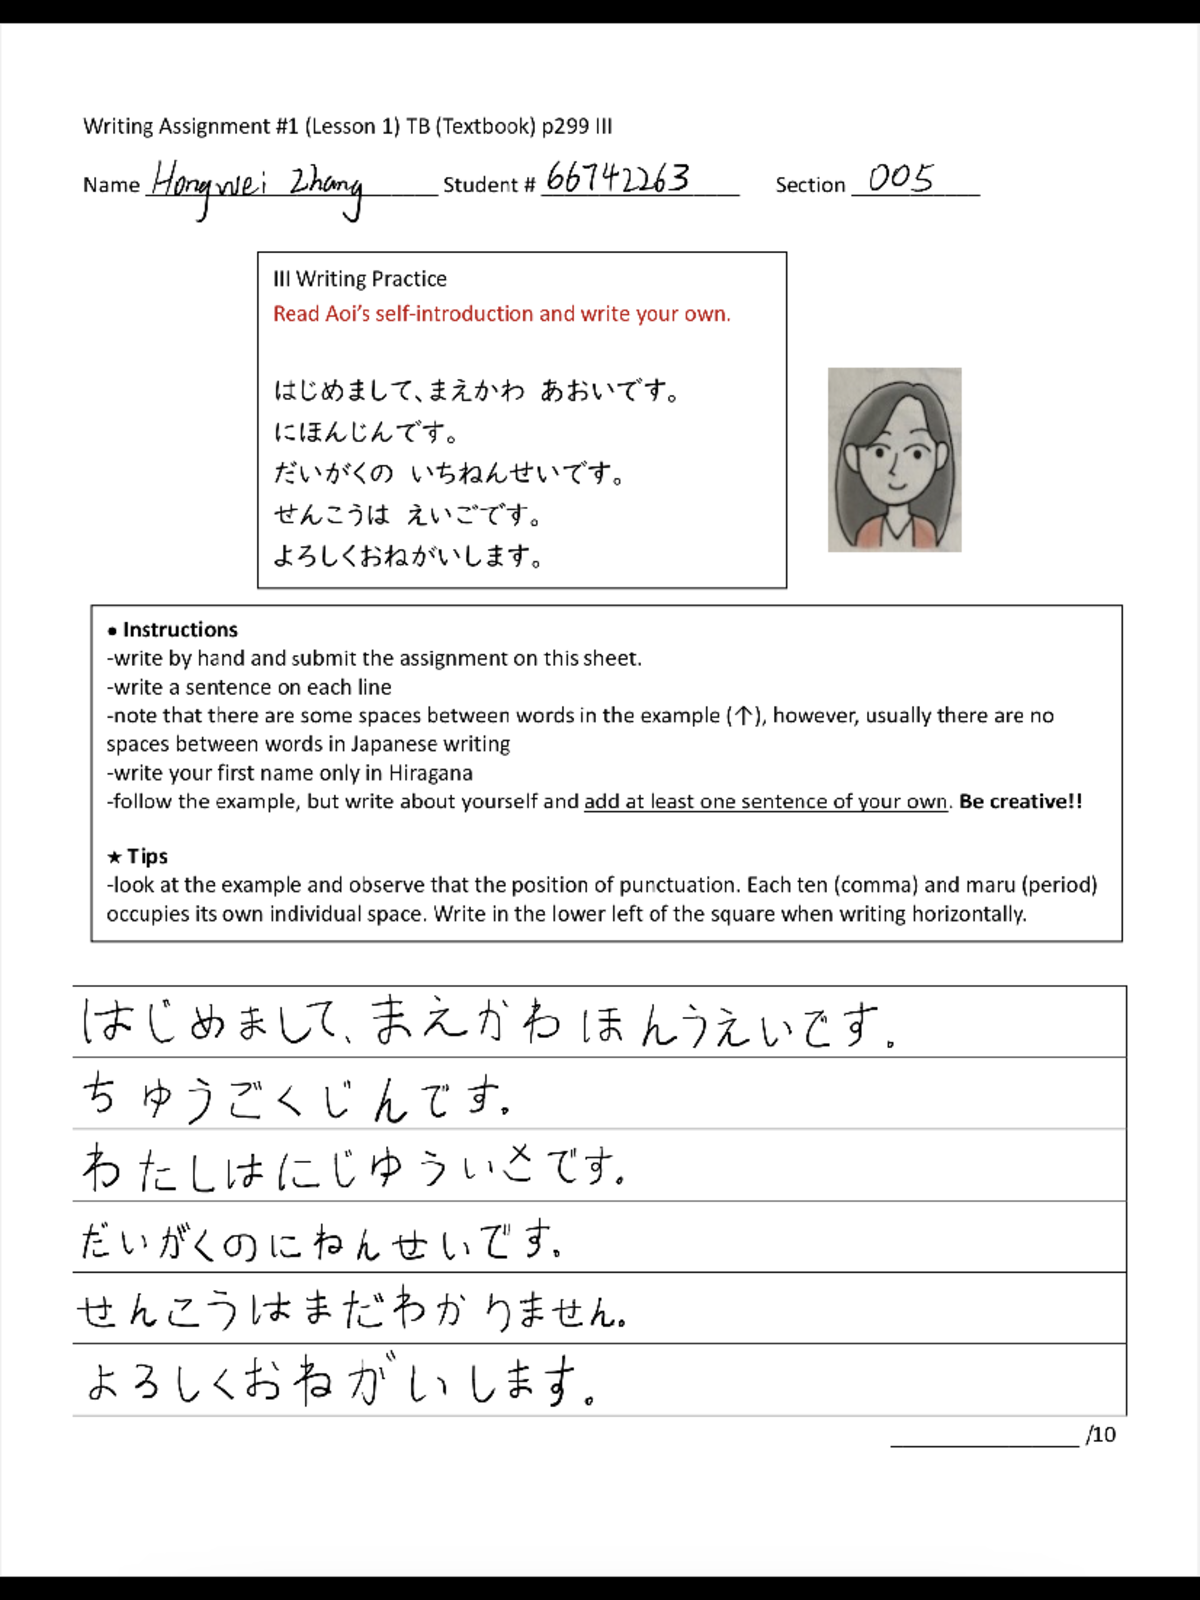 Writing Assignment #1 (Lesson 1) TB (Textbook) p299 III
Name Hongwei Zhang Student # 66742263 Section 005
III Writing Practice
Read Aoi's self-introduction and write your own.
はじめまして、まえかわ あおいです。
にほんじんです。
だいがくの いちねんせいです。
せんこうは えいごです。
よろしくおねがいします。
● Instructions
-write by hand and submit the assignment on this sheet.
-write a sentence on each line
-note that there are some spaces between words in the example (↑), however, usually there are no
spaces between words in Japanese writing
-write your first name only in Hiragana
-follow the example, but write about yourself and add at least one sentence of your own. Be creative!!
★ Tips
-look at the example and observe that the position of punctuation. Each ten (comma) and maru (period)
occupies its own individual space. Write in the lower left of the square when writing horizontally.
はじめまして、まえかわ ほんうえいです。
ちゆうごくじんです。
わたしはにじゆういさです。
だいがくのにねんせいです。
せんこうはまだわかりません。
よろしくおねがいします。
/10